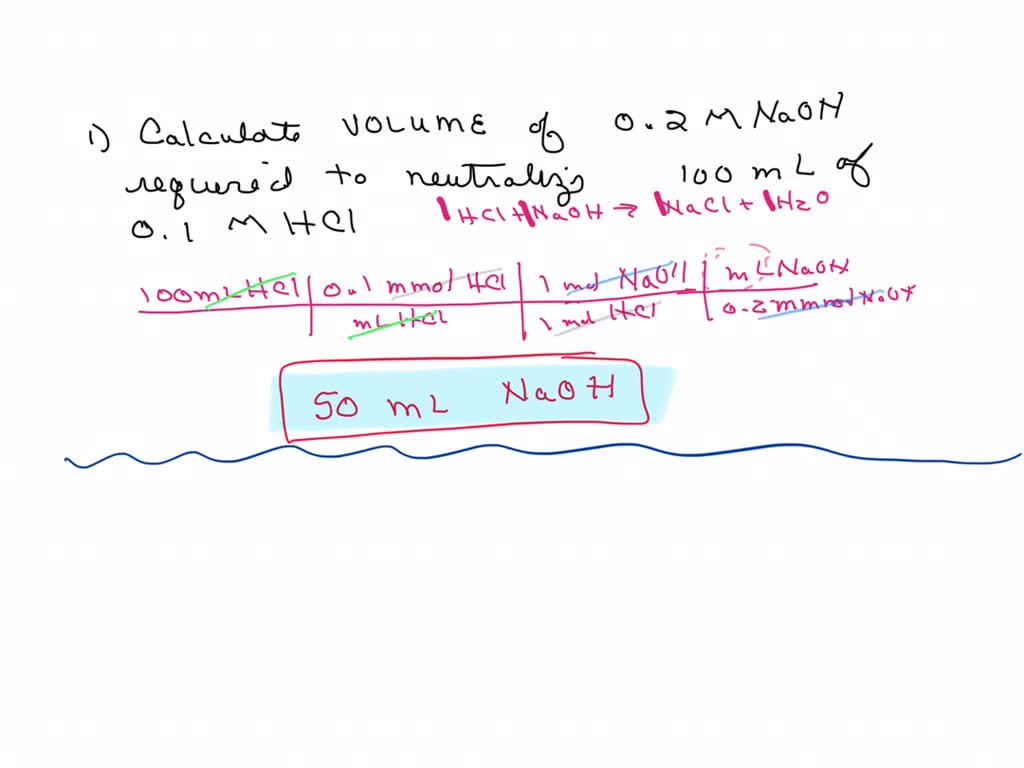 1) Calculate VOLUME of 0.2 M NaOH
required to neutralize 100 mL of
0.1 M HCl
1HCl + 1NaOH → 1NaCl + 1H2O
100mL HCl | 0.1 mmol HCl | 1 mol NaOH | mL NaOH
mL HCl | 1 mol HCl | 0.2 mmol NaOH
50 mL NaOH